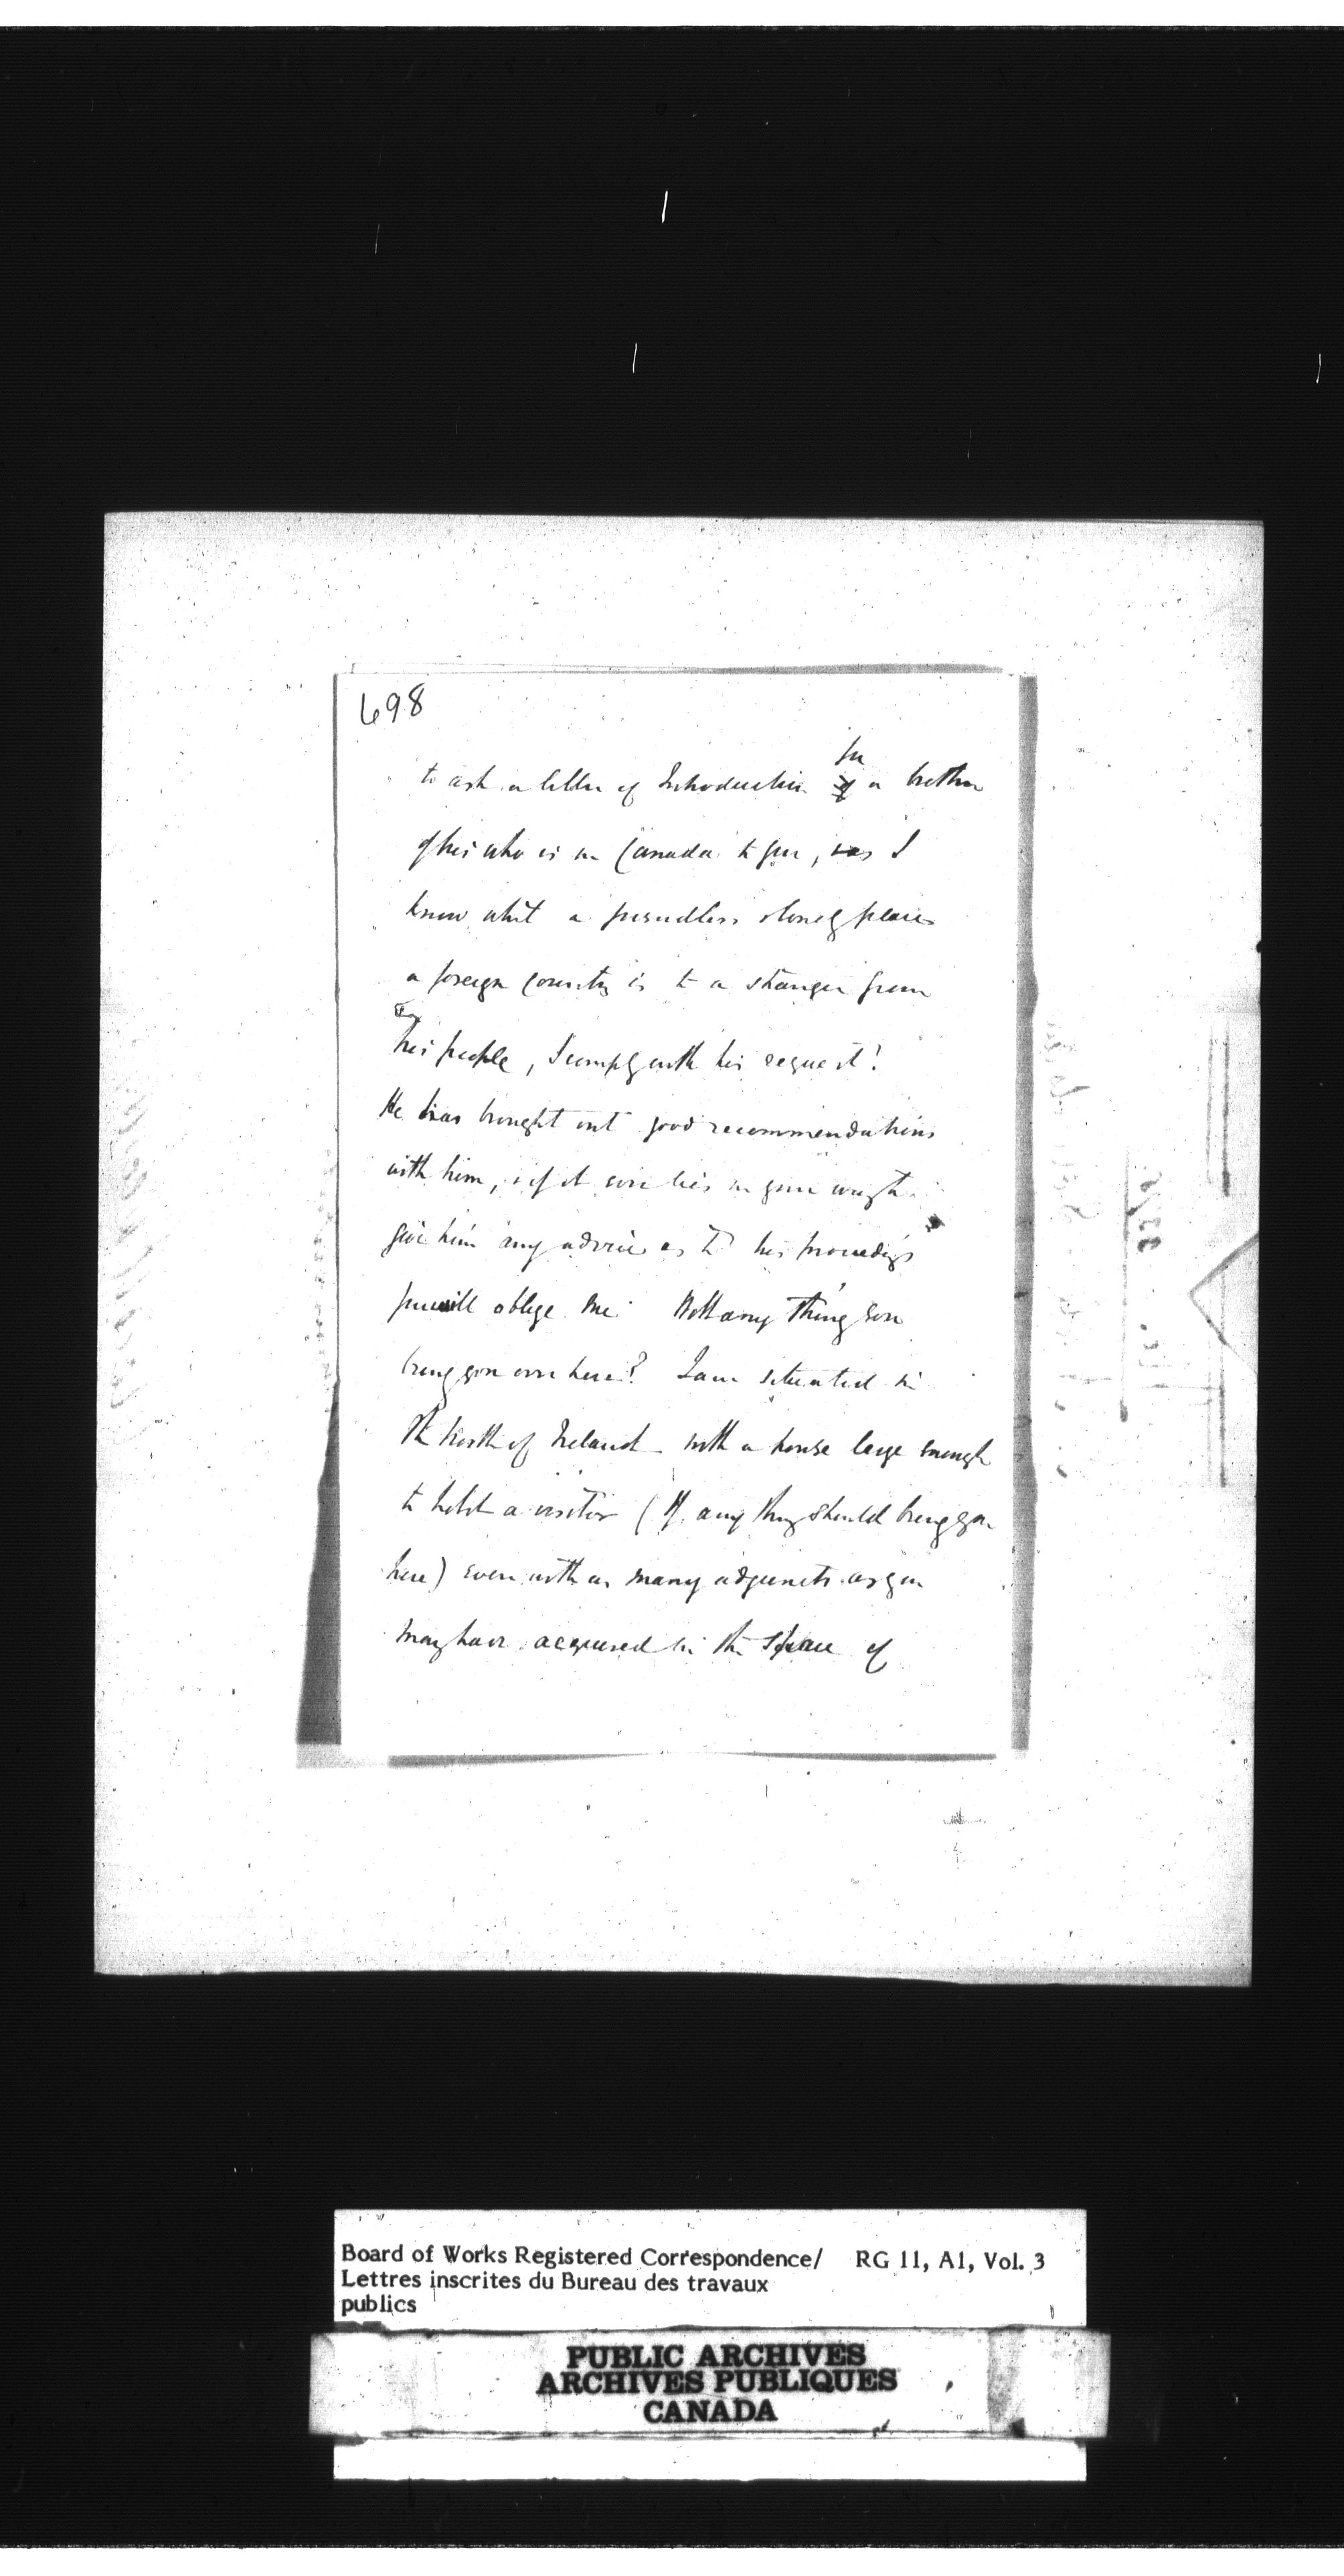 698
for
to ask a letter of Introduction of a brother
of his who is in Canada to you, as I
know what a friendless lonely place
a foreign country is to a stranger from
his people, I comply with his request!
He has brought out good recommendations
with him, & if it ever lies in your way to
give him any advice as to his proceedings
you will oblige me. Will any thing ever
bring you over here? I am situated in
the North of Ireland with a house large enough
to hold a visitor (If any thing should bring you
here) even with as many adjuncts as you
may have acquired in the space of
Board of Works Registered Correspondence/ RG 11, A1, Vol. 3
Lettres inscrites du Bureau des travaux
publics
PUBLIC ARCHIVES
ARCHIVES PUBLIQUES
CANADA